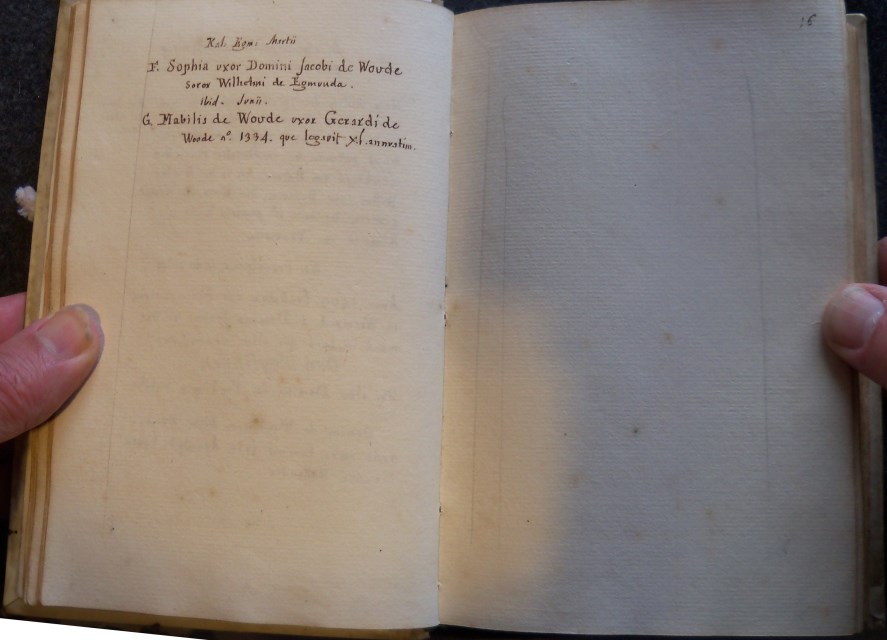 Kal. Egm. Martii
F. Sophia uxor Domini Jacobi de Woude
soror Wilhelmi de Egmunda.
ibid. Junii.
G. Mabilis de Woude uxor Gerardi de
Woude aº. 1334. que legavit xl. annuatim.
16